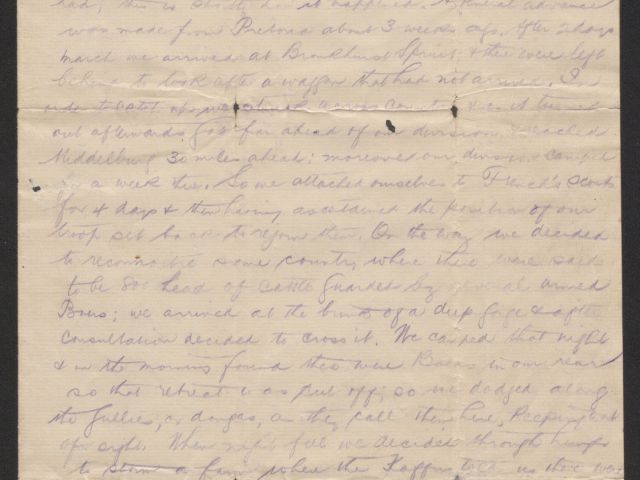 had; this is shortly how it happened. A general advance
was made from Pretoria about 3 weeks ago. After 2 days
march we arrived at Bronkhurst Spruit, & three were left
behind to look after a waggon that had not arrived. In
order to catch up, we struck across country & as it turned
out afterwards got far ahead of our division, & reached
Middelburg 30 miles ahead; moreover our division camped
for a week there. So we attached ourselves to French's scouts
for 4 days & then having ascertained the position of our
troop set back to rejoin them. On the way we decided
to reconnoitre some country where there were said
to be 800 head of cattle guarded by several armed
Boers; we arrived at the brink of a deep gorge & after
consultation decided to cross it. We camped that night
& in the morning found there were Boers in our rear
so that retreat was put off; so we dodged along
the gullies, or dongas, as they call them here, keeping out
of sight. When night fell we decided through hunger
to storm a farm where the Kaffirs told us there were